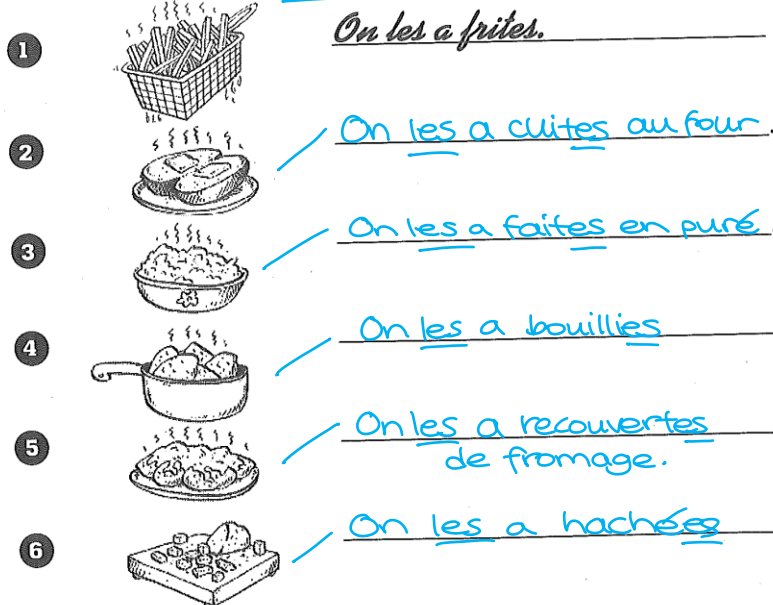 1
On les a frites.
2
On les a cuites au four.
3
On les a faites en puré.
4
On les a bouillies
5
On les a recouvertes
de fromage.
6
On les a hachées